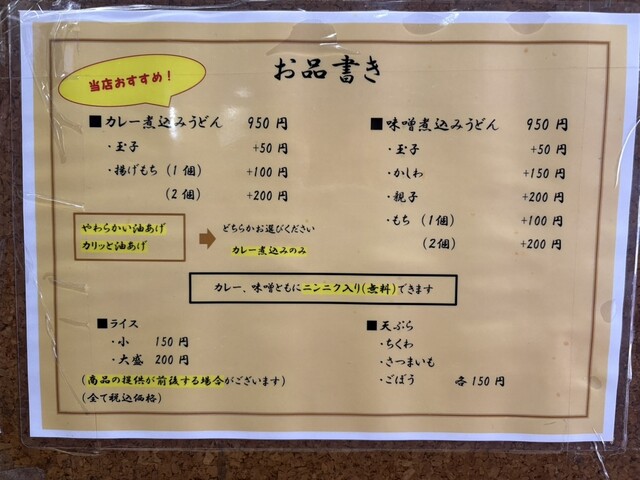 お品書き
当店おすすめ！
■カレー煮込みうどん 950円
・玉子 +50円
・揚げもち（1個） +100円
（2個） +200円
やわらかい油あげ
カリッと油あげ
どちらかお選びください
カレー煮込みのみ
■味噌煮込みうどん 950円
・玉子 +50円
・かしわ +150円
・親子 +200円
・もち（1個） +100円
（2個） +200円
カレー、味噌ともにニンニク入り（無料）できます
■ライス
・小 150円
・大盛 200円
（商品の提供が前後する場合がございます）
（全て税込価格）
■天ぷら
・ちくわ
・さつまいも
・ごぼう 各150円